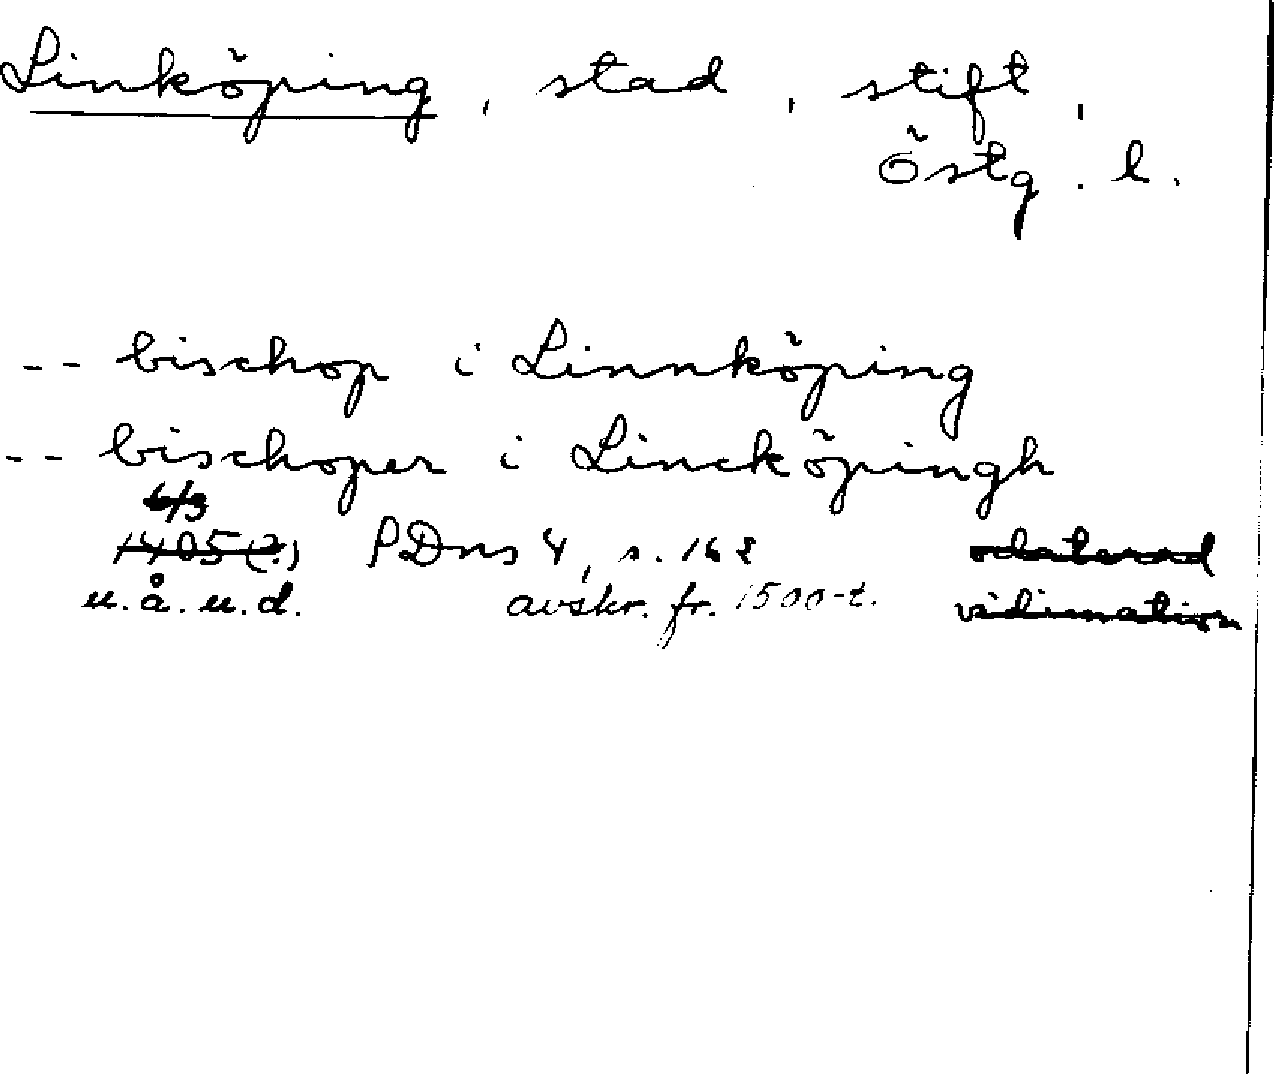 Linköping, stad, stift,
Östg. l.
-- bischop i Linnköping
-- bischoper i Lincköpingh
6/3
1405(?) PDns 4, s. 162 odaterad
u.å.u.d. avskr. fr. 1500-t. vidimation